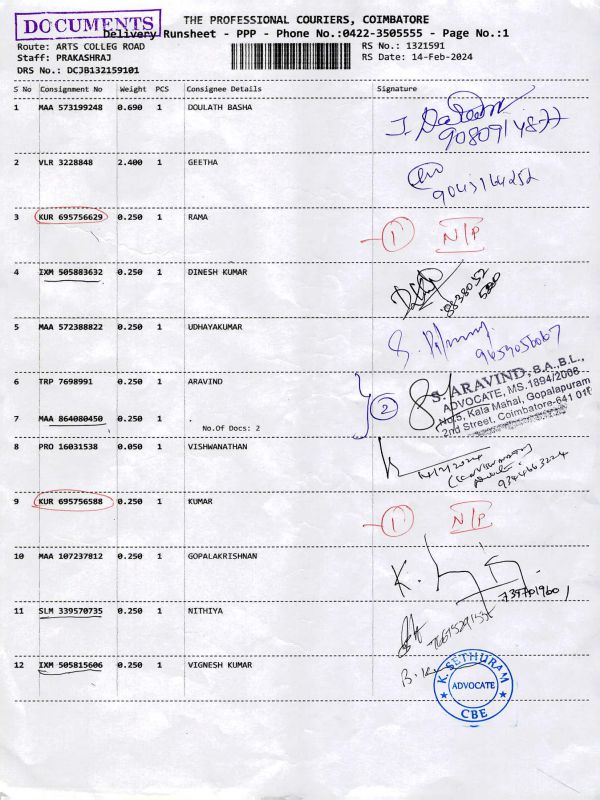 DOCUMENTS
THE PROFESSIONAL COURIERS, COIMBATORE
Delivery Runsheet - PPP - Phone No.:0422-3505555 - Page No.:1
Route: ARTS COLLEG ROAD
RS No.: 1321591
Staff: PRAKASHRAJ
RS Date: 14-Feb-2024
DRS No.: DCJB132159101
S No Consignment No Weight PCS Consignee Details Signature
1 MAA 573199248 0.690 1 DOULATH BASHA
2 VLR 3228848 2.400 1 GEETHA
3 KUR 695756629 0.250 1 RAMA
1 N/P
4 IXM 505883632 0.250 1 DINESH KUMAR
5 MAA 572388822 0.250 1 UDHAYAKUMAR
6 TRP 7698991 0.250 1 ARAVIND
2
S. ARAVIND, B.A.,B.L.,
ADVOCATE, MS.1894/2008
No.5, Kala Mahal, Gopalapuram
2nd Street, Coimbatore-641 018
7 MAA 864080450 0.250 1
No.Of Docs: 2
8 PRO 16031538 0.050 1 VISHWANATHAN
9 KUR 695756588 0.250 1 KUMAR
1 N/P
10 MAA 107237812 0.250 1 GOPALAKRISHNAN
11 SLM 339570735 0.250 1 NITHIYA
12 IXM 505815606 0.250 1 VIGNESH KUMAR
K. SETHURAM
ADVOCATE
CBE